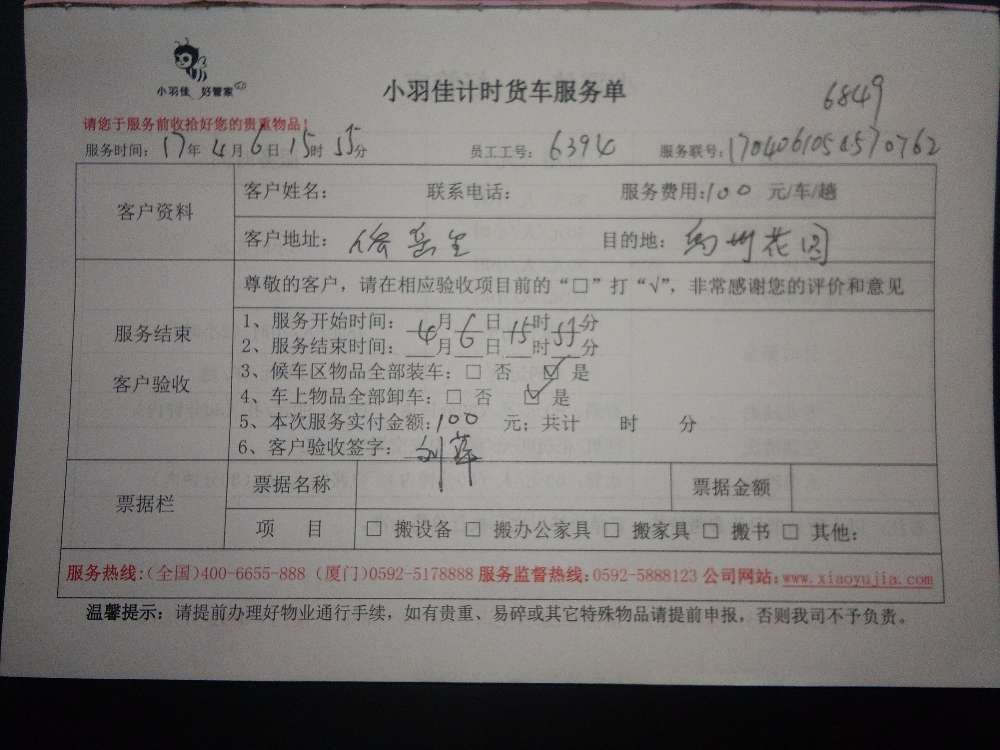 小羽佳 好管家
小羽佳计时货车服务单
6849
请您于服务前收拾好您的贵重物品!
服务时间: 17年4月6日15时55分 员工工号: 6394 服务联号:
客户资料
客户姓名: 联系电话: 服务费用:100 元/车/趟
客户地址: 目的地: 花园
服务结束
客户验收
尊敬的客户,请在相应验收项目前的“□”打“√”,非常感谢您的评价和意见
1、服务开始时间: 4月6日15时 分
2、服务结束时间: __月__日__时__分
3、候车区物品全部装车:□ 否 ☑ 是
4、车上物品全部卸车:□ 否 ☑ 是
5、本次服务实付金额:100 元;共计 时 分
6、客户验收签字: 刘萍
票据栏
票据名称 票据金额
项 目 □ 搬设备 □ 搬办公家具 □ 搬家具 □ 搬书 □ 其他:
服务热线:(全国)400-6655-888 (厦门)0592-5178888 服务监督热线:0592-5888123 公司网站:www.xiaoyujia.com
温馨提示:请提前办理好物业通行手续,如有贵重、易碎或其它特殊物品请提前申报,否则我司不予负责。